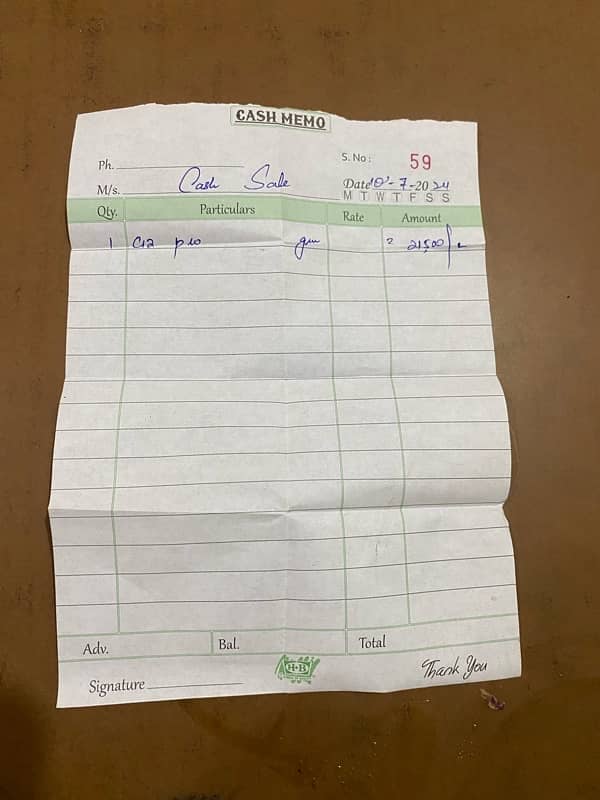 CASH MEMO
Ph.
S. No: 59
M/s. Cash Sale
Date 10-7-2024
M T W T F S S
Qty. Particulars Rate Amount
1 G12 pro
Adv. Bal. Total
H·B
Thank You
Signature